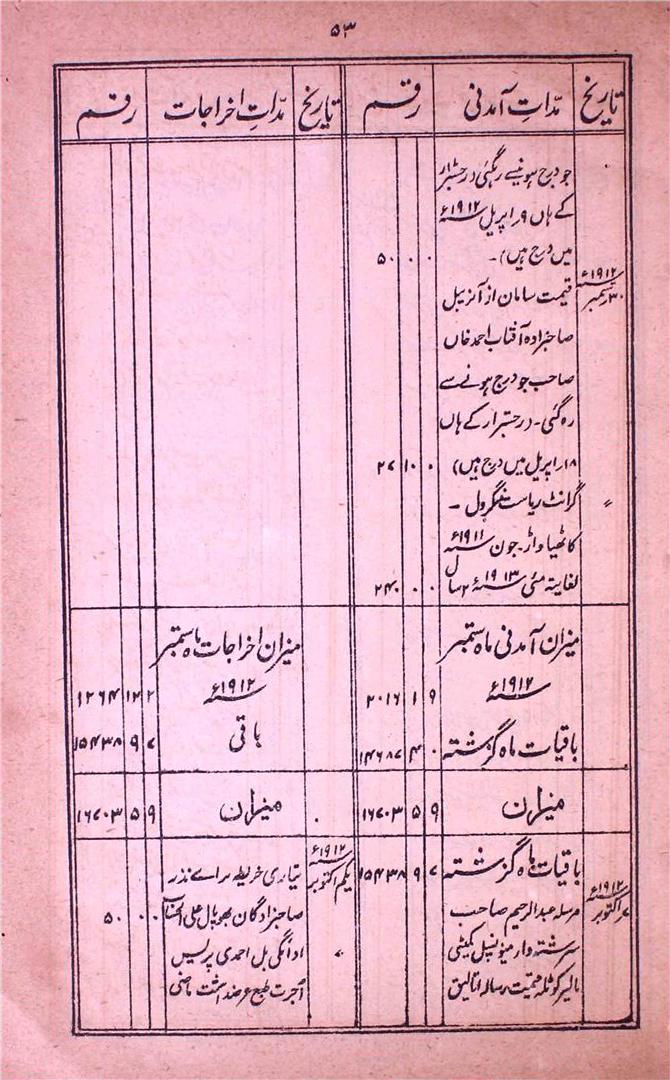 ۵۳
تاریخ مدّاتِ آمدنی رقم تاریخ مدّاتِ اخراجات رقم
جو درج ہونیسے رہگئی درجسٹرار
کے ہاں ۹؍اپریل ۱۹۱۲ء
میں درج ہیں)۔ ۵۰ ۰ ۰
۱۹۱۲ء
۳۰ ستمبر قیمت سامان از آنریبل
صاحبزادہ آفتاب احمد خاں
صاحب جو درج ہونے سے
رہ گئی۔ درجسٹرار کے ہاں
۱۸؍اپریل میں درج ہیں) ۲۷ ۱۰ ۰
〃 گرانٹ ریاست منگرول ۔
کاٹھیاواڑ۔ جون ۱۹۱۱ء
لغایتہ مئی ۱۹۱۳ء ۲ سال ۲۴۰ ۰ ۰
میزان آمدنی ماہ ستمبر
۱۹۱۲ء ۲۰۱۶ ۱ ۹
باقیات ماہ گزشتہ ۱۴۶۸۷ ۴ ۰
میزان اخراجات ماہ ستمبر
۱۹۱۲ء ۱۲۶۴ ۱۲ ۲
باقی ۱۵۴۳۸ ۹ ۷
میزان ۱۶۷۰۳ ۵ ۹
میزان ۱۶۷۰۳ ۵ ۹
باقیات ماہ گزشتہ ۱۵۴۳۸ ۹ ۷
۱۹۱۲ء
۷ اکتوبر مرسلہ عبدالرحیم صاحب
سررشتہ دار میونسپل کمیٹی
مالیر کوٹلہ قیمت رسالہ اتالیق
۱۹۱۲ء
یکم اکتوبر تیاری خریطہ براے نذر
صاحبزادگان بھوپال علی الحساب ۵۰ ۰ ۰
〃 ادائگی بل احمدی پریس
اجرت طبع عرضداشت ماضی